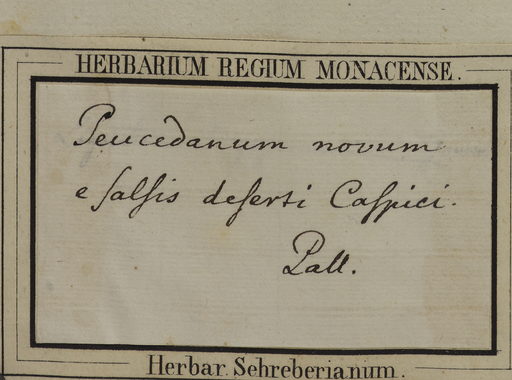 HERBARIUM REGIUM MONACENSE.
Peucedanum novum
e salsis deserti Caspici.
Pall.
Herbar. Schreberianum.